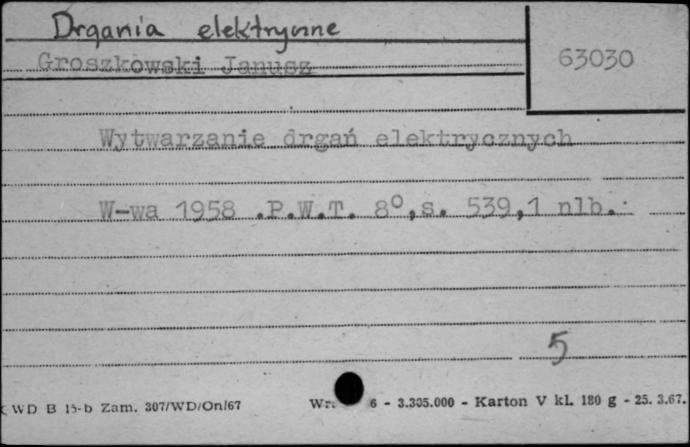 Drgania elektryczne
Groszkowski Janusz
63030
Wytwarzanie drgań elektrycznych
W-wa 1958 .P.W.T. 8⁰,s. 539,1 nlb.
5
WD B 15-b Zam. 307/WD/On/67
6 - 3.305.000 - Karton V kl. 180 g - 25. 3.67.